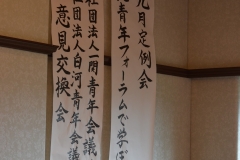 九月定例会
青年フォーラムで学ぼ
社団法人一関青年会議
社団法人白河青年会議
意見交換会